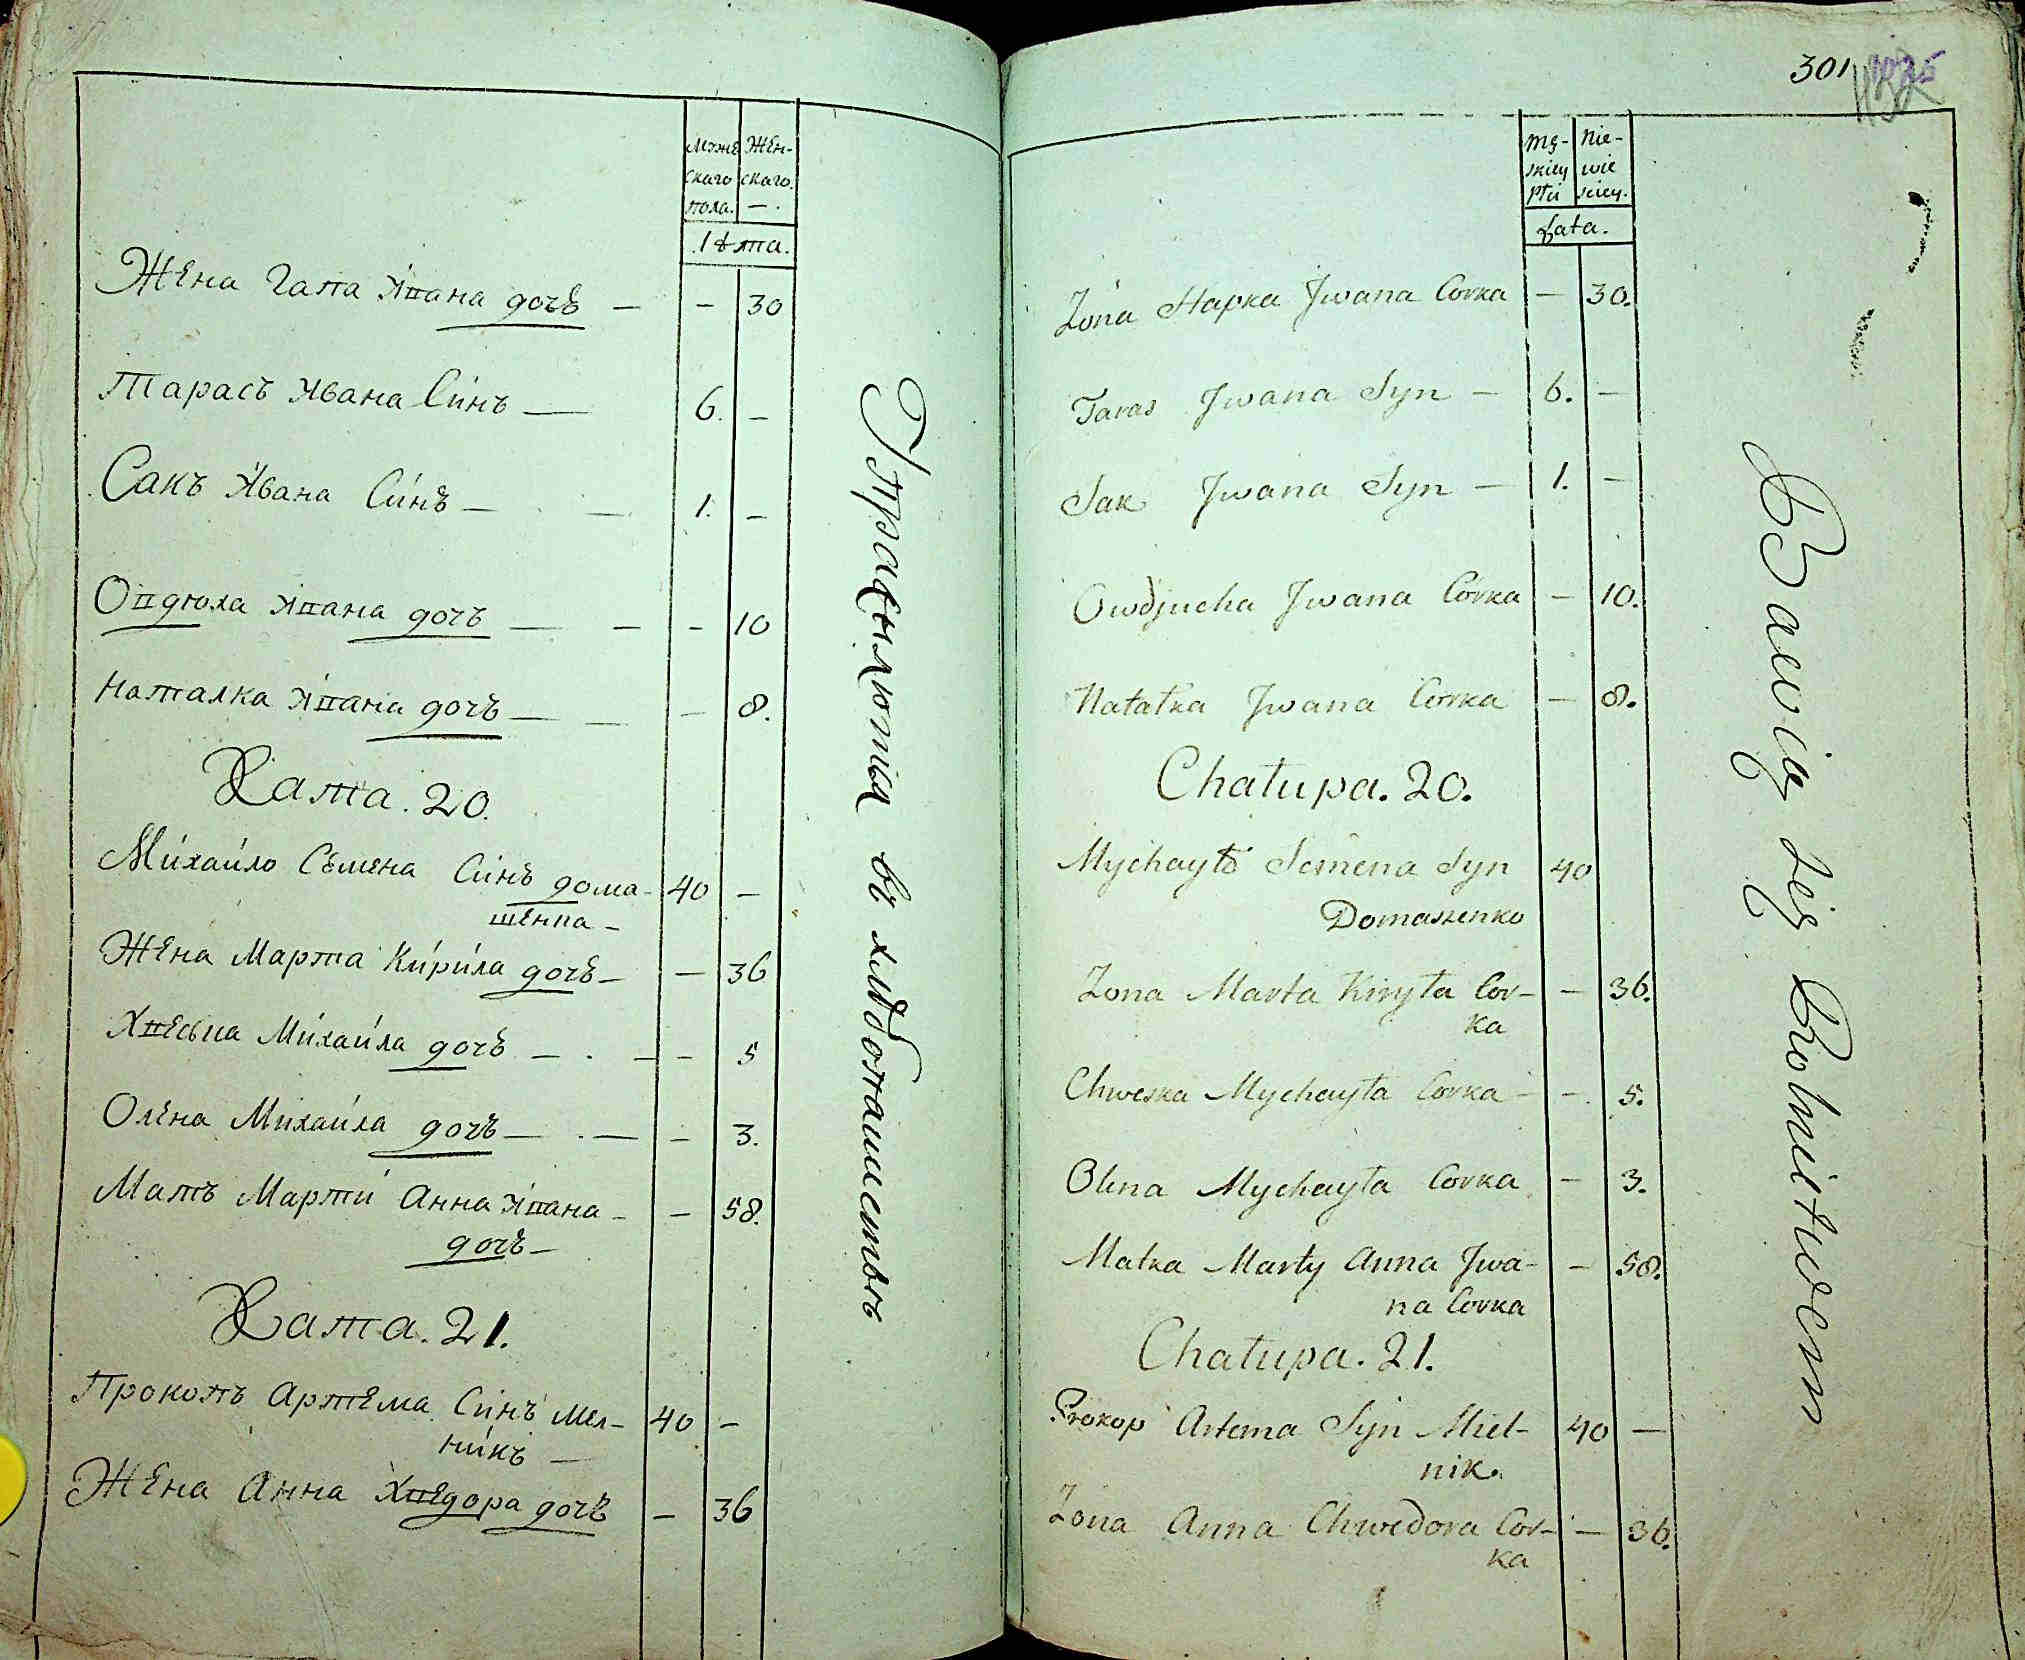 Муже
скаго
пола.
Жен-
скаго.
— .
Лѣта.
Жена Гапа Ивана дочь — — 30
Тарасъ Ивана Синъ — 6. —
Сакъ Ивана Синъ — — 1. —
Овдюха Ивана дочь — — — 10
Наталка Ивана дочь — — — 8.
Хата. 20.
Михайло Семена Синъ дома- 40 —
шенка —
Жена Марта Кирила дочь — — 36
Хвеська Михайла дочь — . — — 5
Олена Михайла дочь — . — — 3.
Мать Марти Анна Ивана — — 58.
дочь —
Хата. 21.
Прокопъ Артема Синъ Мел- 40 —
никъ —
Жена Анна Хведора дочь — 36
Упражняются въ хлѣбопашествѣ
301
Mę-
skiey
Płci
Nie-
wie
sciey.
Lata.
Żona Hapka Jwana Corka — 30.
Taras Jwana Syn — 6. —
Sak Jwana Syn — 1. —
Owdjucha Jwana Corka — 10.
Natałka Jwana Corka — 8.
Chałupa. 20.
Mychayło Semena Syn 40
Domaszenko
Zona Marta Kiryła Cor- — 36.
ka
Chweska Mychayła Corka — — 5.
Olena Mychayła Corka — 3.
Matka Marty Anna Jwa- — 58.
na Corka
Chałupa. 21.
Prokop Artema Syn Miel- 40 —
nik.
Zona Anna Chwedora Cor- — 36.
ka
Bawią się Rolnictwem